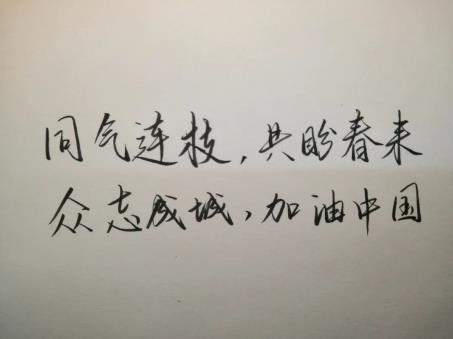 同气连枝,共盼春来
众志成城,加油中国